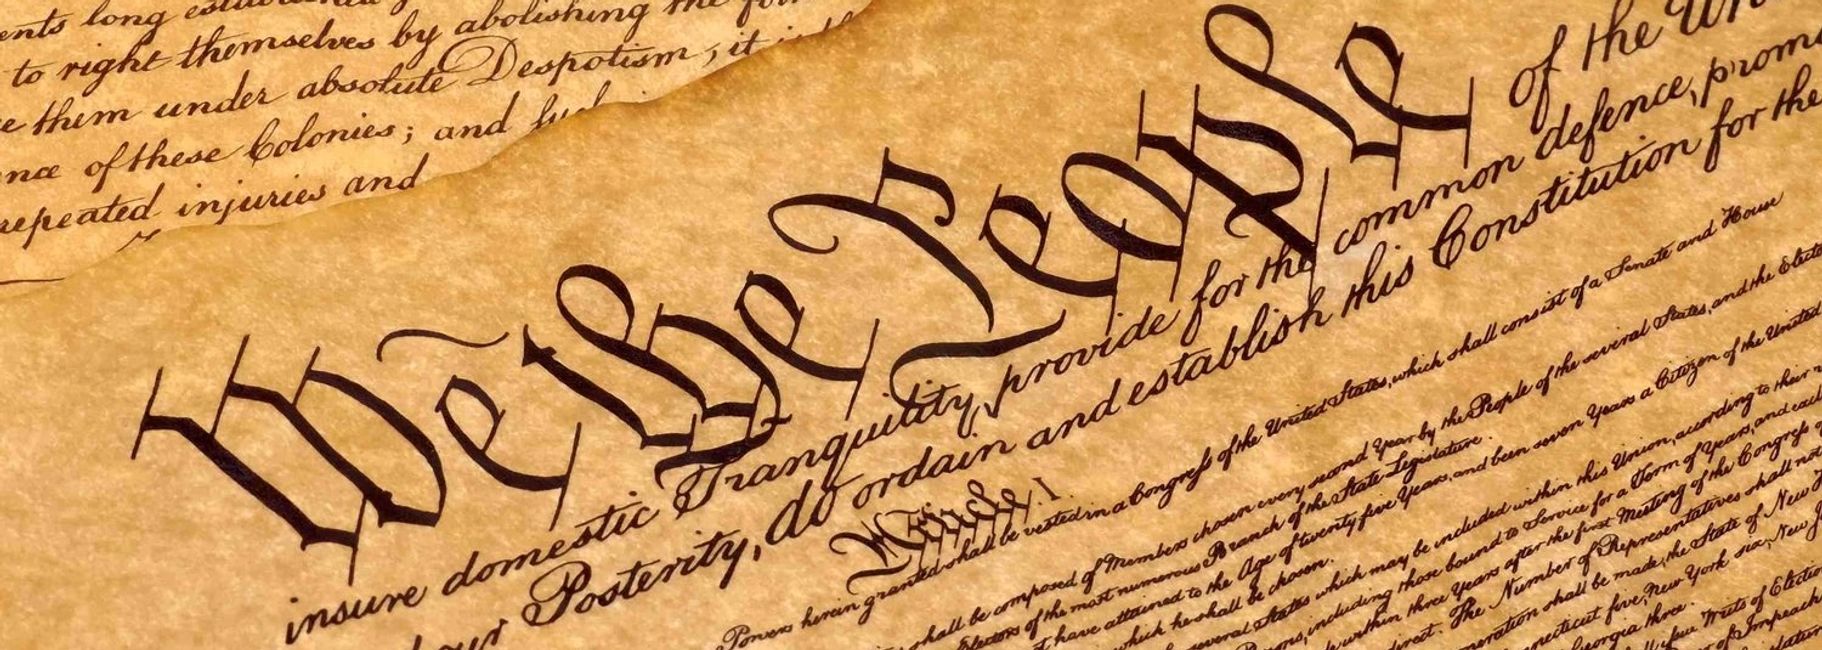 ents long established
to right themselves by abolishing the for
e them under absolute Despotism, it i
nce of these Colonies; and such
repeated injuries and
We the People
of the Un
insure domestic Tranquility, provide for the common defence, promo
our Posterity, do ordain and establish this Constitution for the
Article I
Powers herein granted shall be vested in a Congress of the United States, which shall consist of a Senate and House
shall be composed of Members chosen every second Year by the People of the several States, and the Electo
Electors of the most numerous Branch of the State Legislature.
have attained to the Age of twenty five Years, and been seven Years a Citizen of the United
which he shall be chosen.
several States which may be included within this Union, according to their
ons, including those bound to Service for a Term of Years, and
within three Years after the first Meeting of the Congress of
direct. The Number of Representatives shall not
meration shall be made, the State of New
necticut five, New York six, New J
eorgia three.
Writs of Election
of Impeach